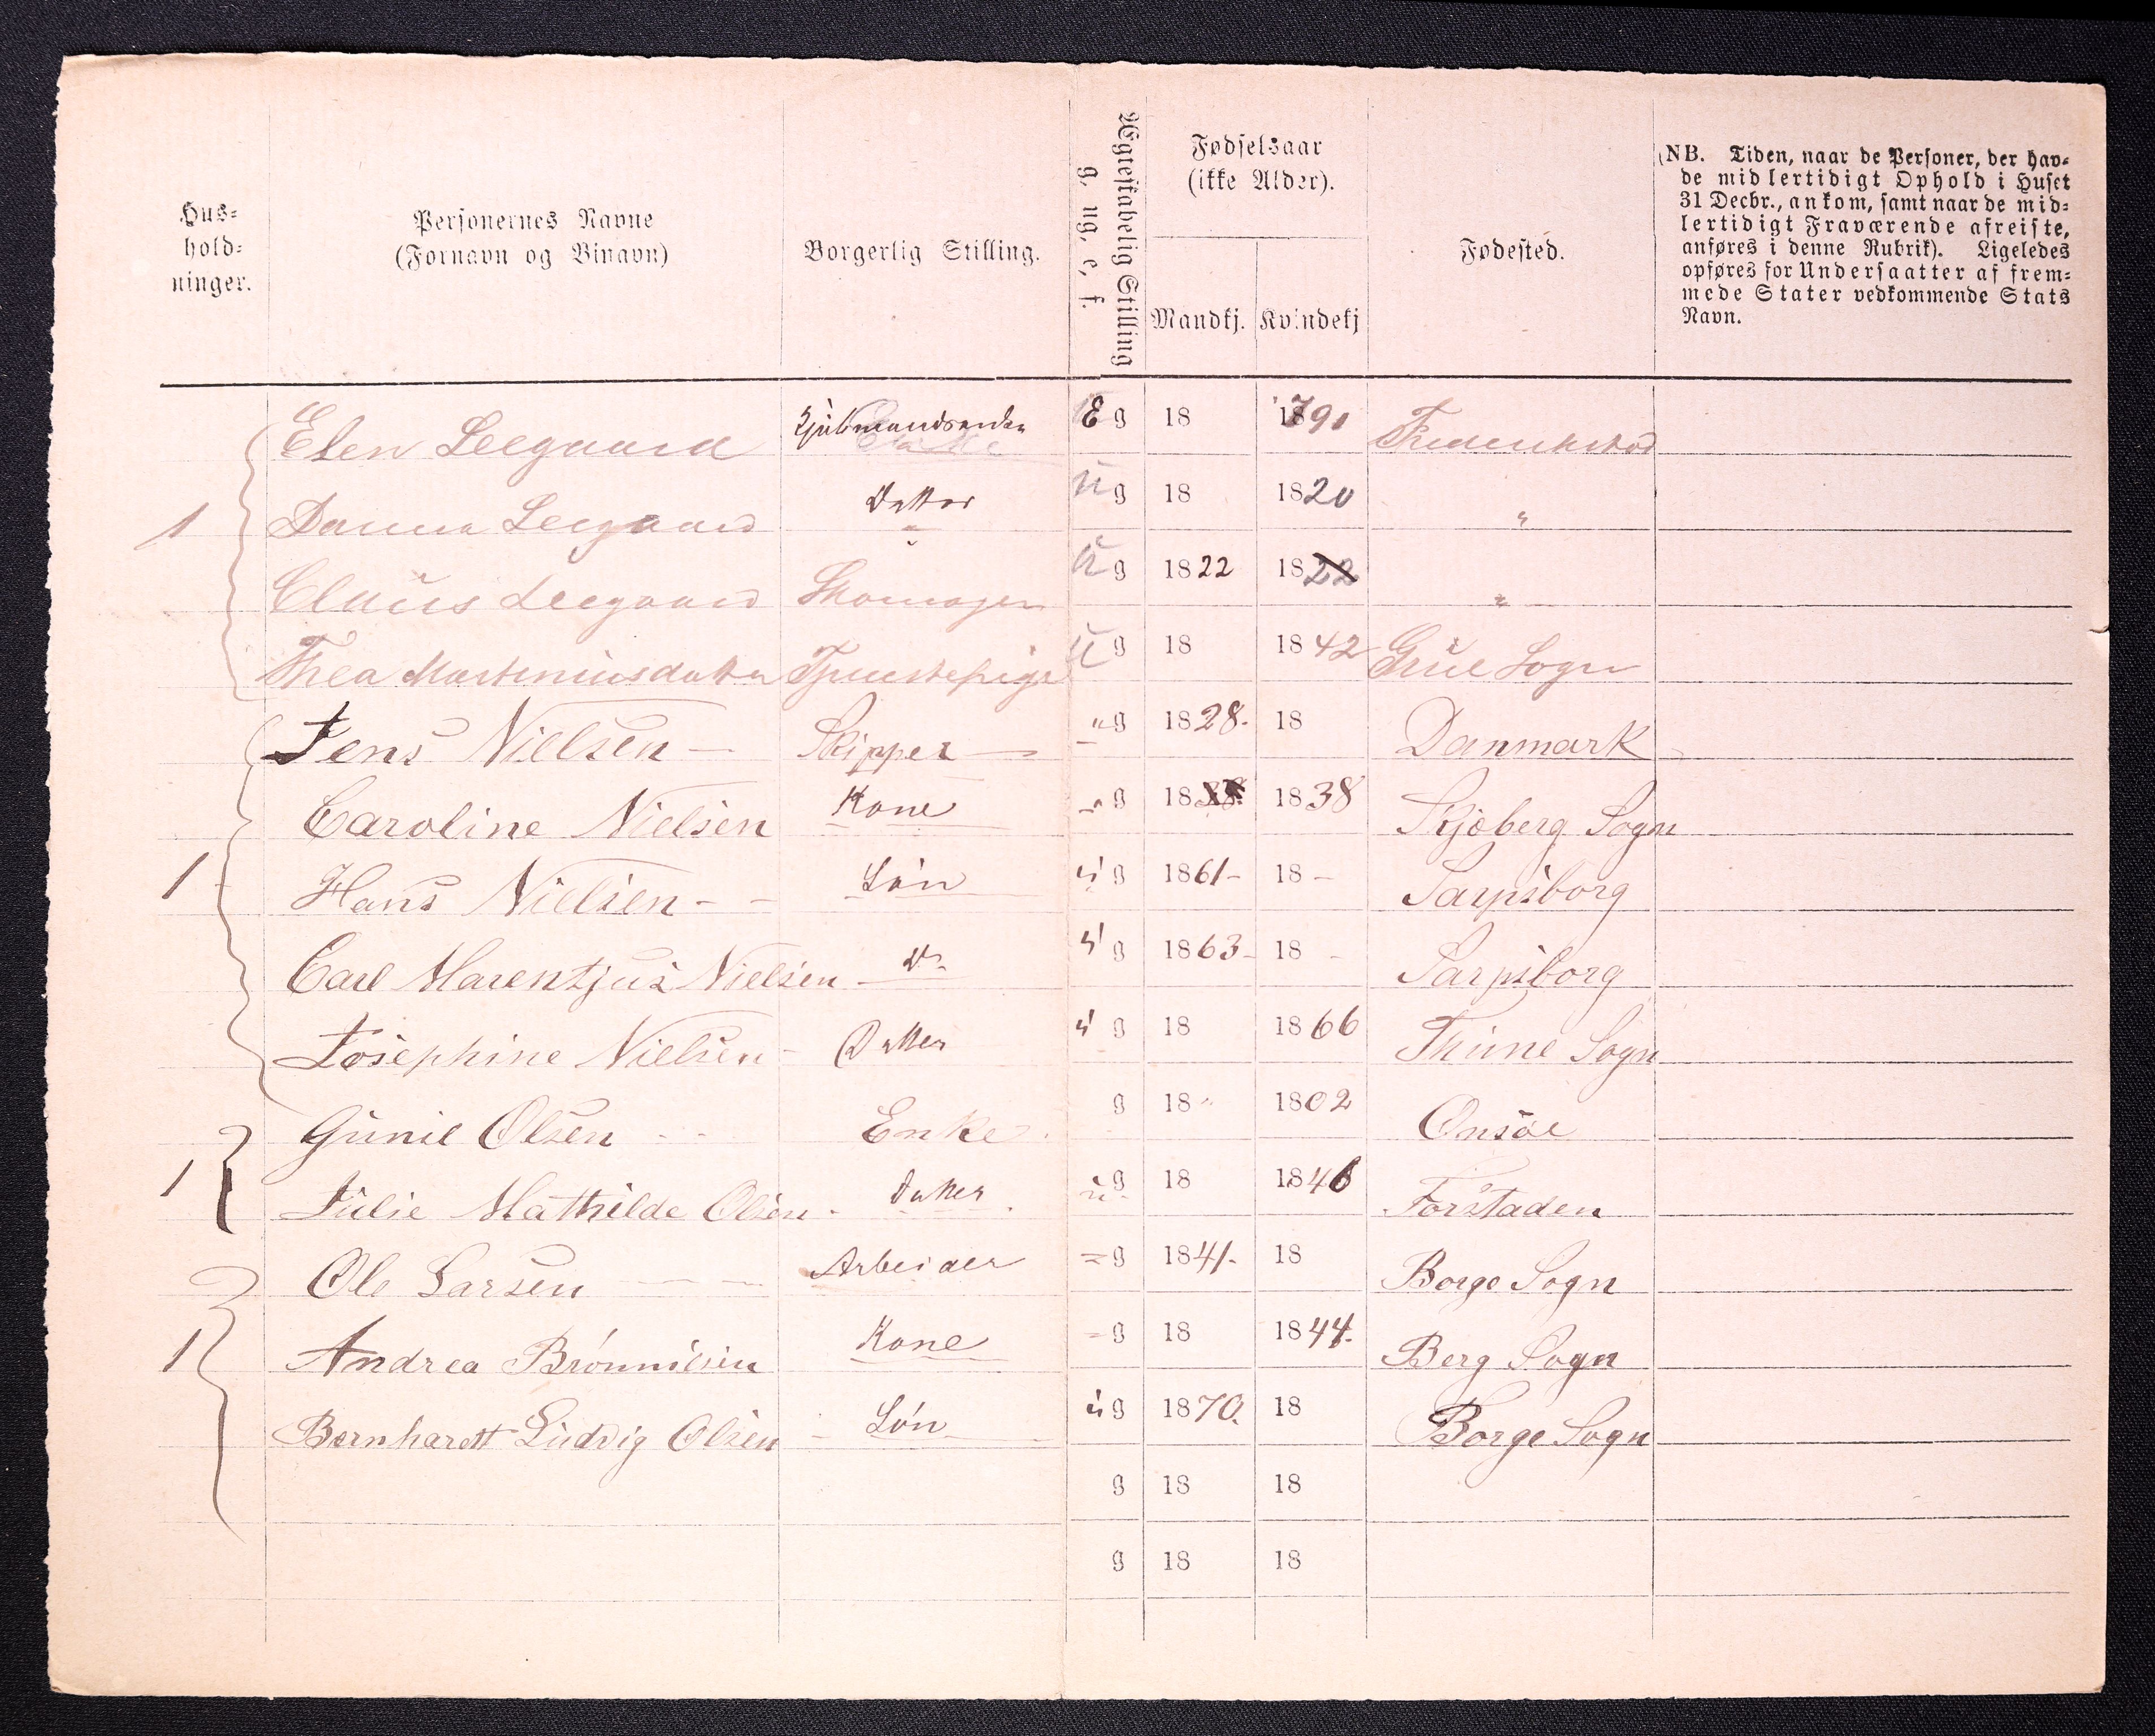 Hus-
hold-
ninger.
Personernes Navne
(Fornavn og Binavn)
Borgerlig Stilling.
Ægteskabelig Stilling
g. ug. e. f.
Fødselsaar
(ikke Alder).
Mandkj. Kvindekj
Fødested.
(NB. Tiden, naar de Personer, der hav-
de midlertidigt Ophold i Huset
31 Decbr., ankom, samt naar de mid-
lertidigt Fraværende afreiste,
anføres i denne Rubrik). Ligeledes
opføres for Undersaatter af frem-
mede Stater vedkommende Stats
Navn.
Elen Leegaard Kjøbmandsenke E g 18 1791 Frederikstad
1 Leegaard Datter u g 18 1820 "
Claus Leegaard Skomager u g 1822 1822 "
Thea Martiniusdatter Tjenestepige u g 18 1842 Grue Sogn
Jens Nielsen - Skipper " g 1828. 18 Danmark
Caroline Nielsen Kone " g 18 1838 Skjeberg Sogn
1 Hans Nielsen - - Søn u g 1861 - 18 - Sarpsborg
Carl Marentjus Nielsen Do u g 1863 - 18 - Sarpsborg
Josephine Nielsen - Datter u g 18 1866 Thune Sogn
Gunil Olsen - - Enke g 18 1802 Onsøe
1 Julie Mathilde Olsen - Datter u g 18 1846 Forstaden
Ole Larsen Arbeider = g 1841. 18 Borge Sogn
1 Andrea Kone = g 18 1844. Berg Sogn
Bernhardt Ludvig Olsen - Søn u g 1870. 18 Borge Sogn
g 18 18
g 18 18